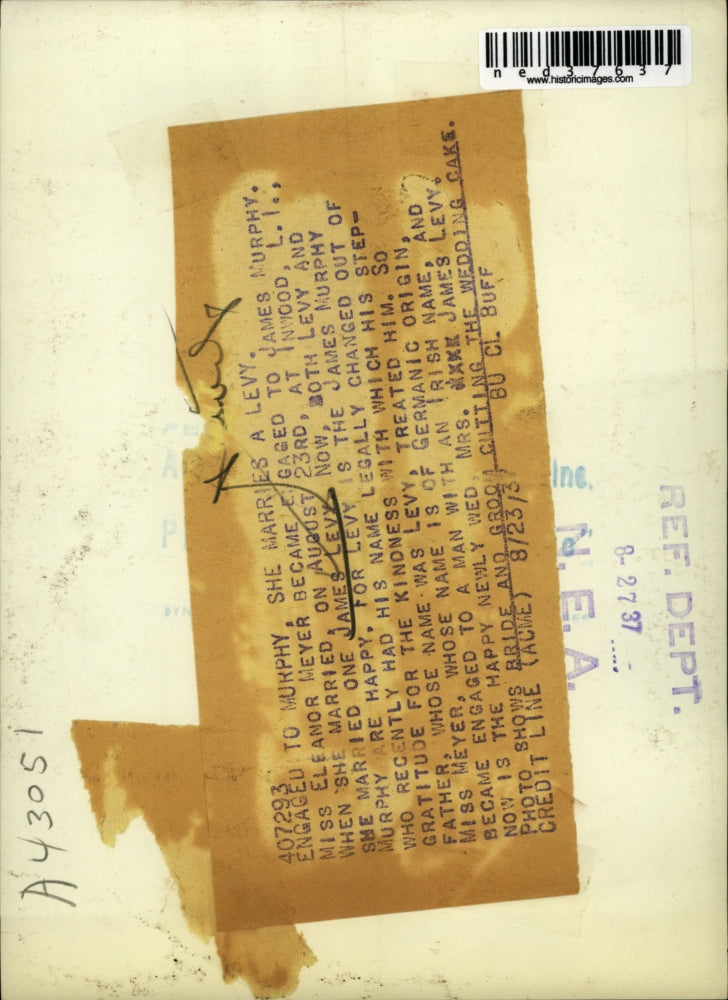 ned37637
www.historicimages.com
407293
ENGAGED TO MURPHY, SHE MARRIES A LEVY.
MISS ELEANOR MEYER BECAME ENGAGED TO JAMES MURPHY.
WHEN SHE MARRIED, ON AUGUST 23RD, AT INWOOD, L.I.,
SHE MARRIED ONE JAMES LEVY. NOW, BOTH LEVY AND
MURPHY ARE HAPPY, FOR LEVY IS THE JAMES MURPHY
WHO RECENTLY HAD HIS NAME LEGALLY CHANGED OUT OF
GRATITUDE FOR THE KINDNESS WITH WHICH HIS STEP-
FATHER, WHOSE NAME WAS LEVY, TREATED HIM. SO
MISS MEYER, WHOSE NAME IS OF GERMANIC ORIGIN,
BECAME ENGAGED TO A MAN WITH AN IRISH NAME, AND
NOW IS THE HAPPY NEWLY WED, MRS. JAMES LEVY.
PHOTO SHOWS BRIDE AND GROOM CUTTING THE WEDDING CAKE.
CREDIT LINE (ACME) 8/23/37 BU CL BUFF
Inc.
N.E.A.
8-27 37
REF. DEPT.
A43051